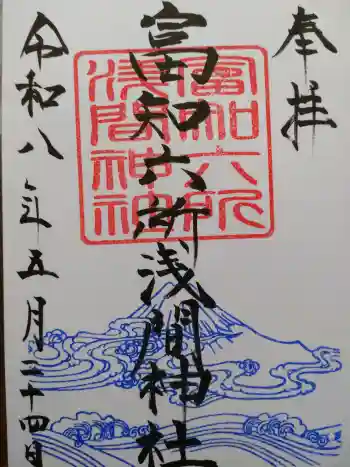 奉拝
富知六所浅間神社
令和八年五月二十四日
富知六所
浅間神社